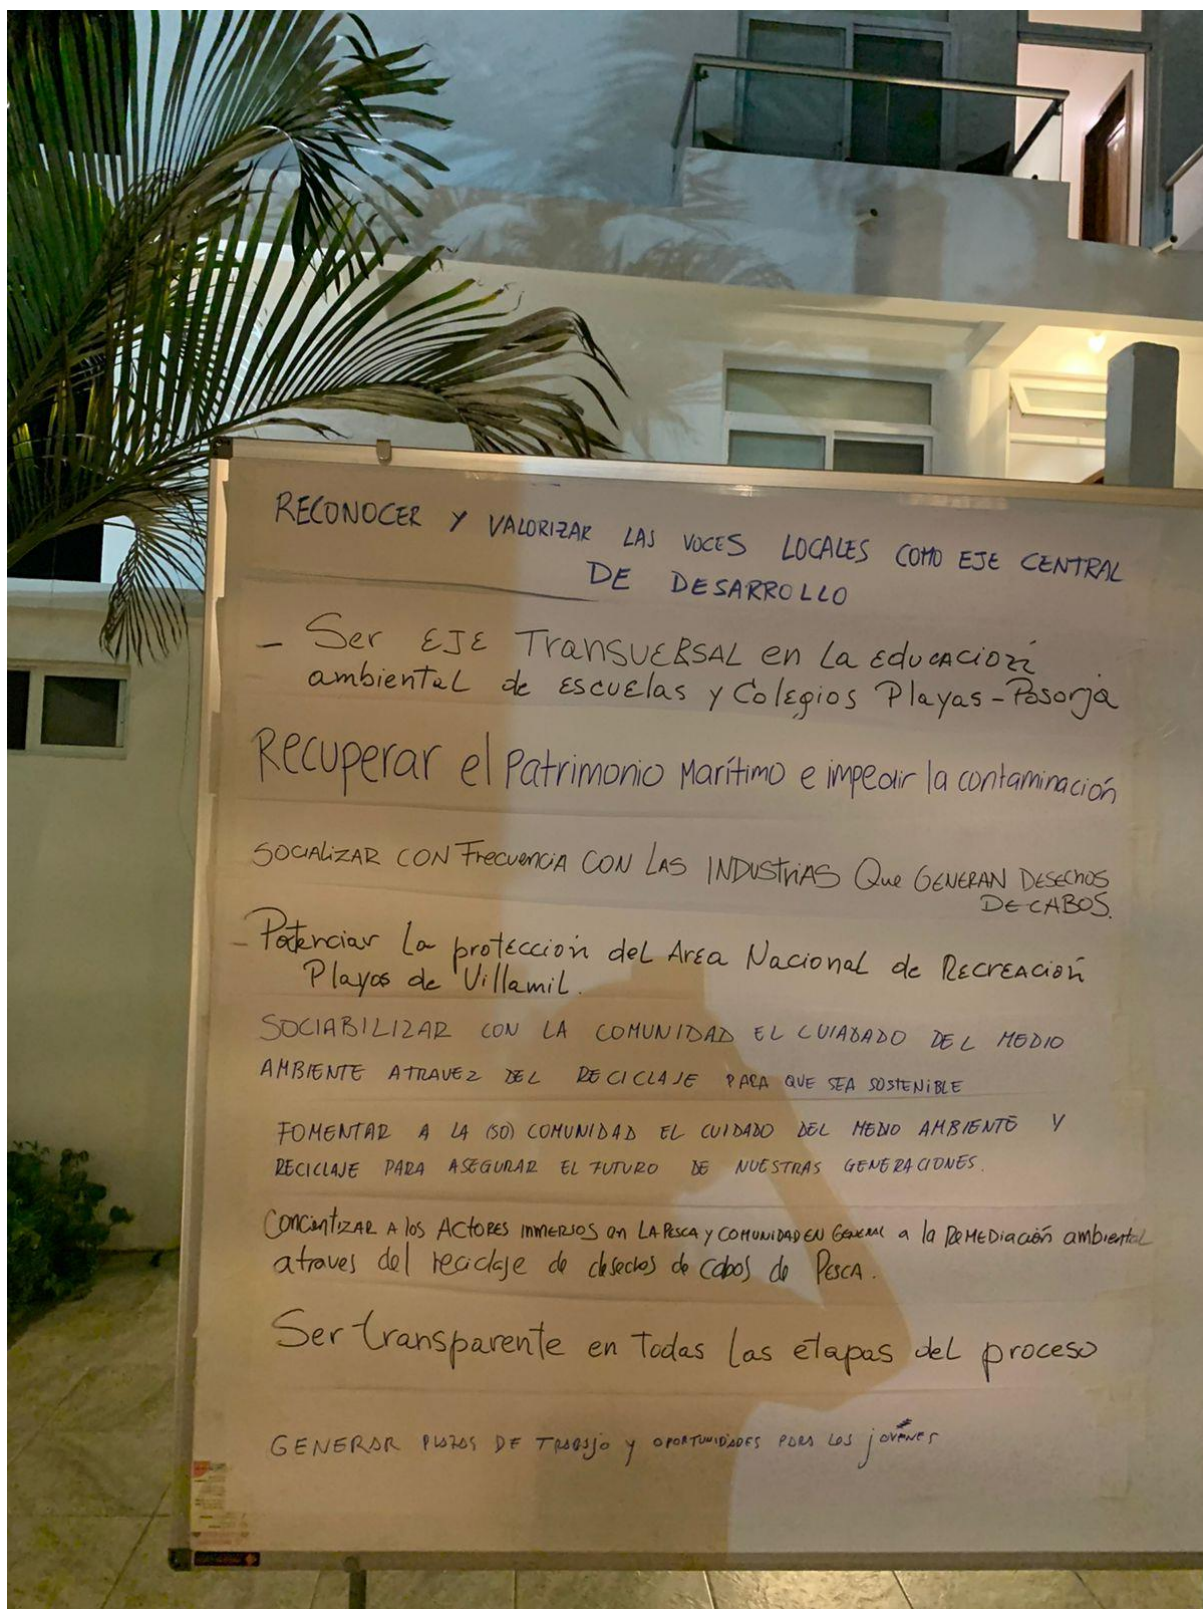 RECONOCER Y VALORIZAR LAS VOCES LOCALES COMO EJE CENTRAL
DE DESARROLLO
- Ser EJE TranSVERSAL en La educación
ambiental de Escuelas y Colegios Playas-Posorja
Recuperar el Patrimonio Marítimo e impedir la contaminación
SOCIALIZAR CON Frecuencia CON LAS INDUSTRIAS Que GENERAN DESECHOS
DE CABOS.
- Potenciar La protección del Area Nacional de Recreación
Playas de Villamil.
SOCIABILIZAR CON LA COMUNIDAD EL CUIADADO DEL MEDIO
AMBIENTE ATRAVEZ DEL RECICLAJE PARA QUE SEA SOSTENIBLE
FOMENTAR A LA (SO) COMUNIDAD EL CUIDADO DEL MEDIO AMBIENTE Y
RECICLAJE PARA ASEGURAR EL FUTURO DE NUESTRAS GENERACIONES.
CONCINTIZAR A LOS ACTORES INMERSOS en LA PESCA Y COMUNIDAD EN GENERAL a la REMEDIACIÓN ambiental
atraves del reciclaje de desechos de cabos de PESCA.
Ser transparente en Todas las etapas del proceso
GENERAR PLAZAS DE TRABAJO Y OPORTUNIDADES PARA LOS jovenes